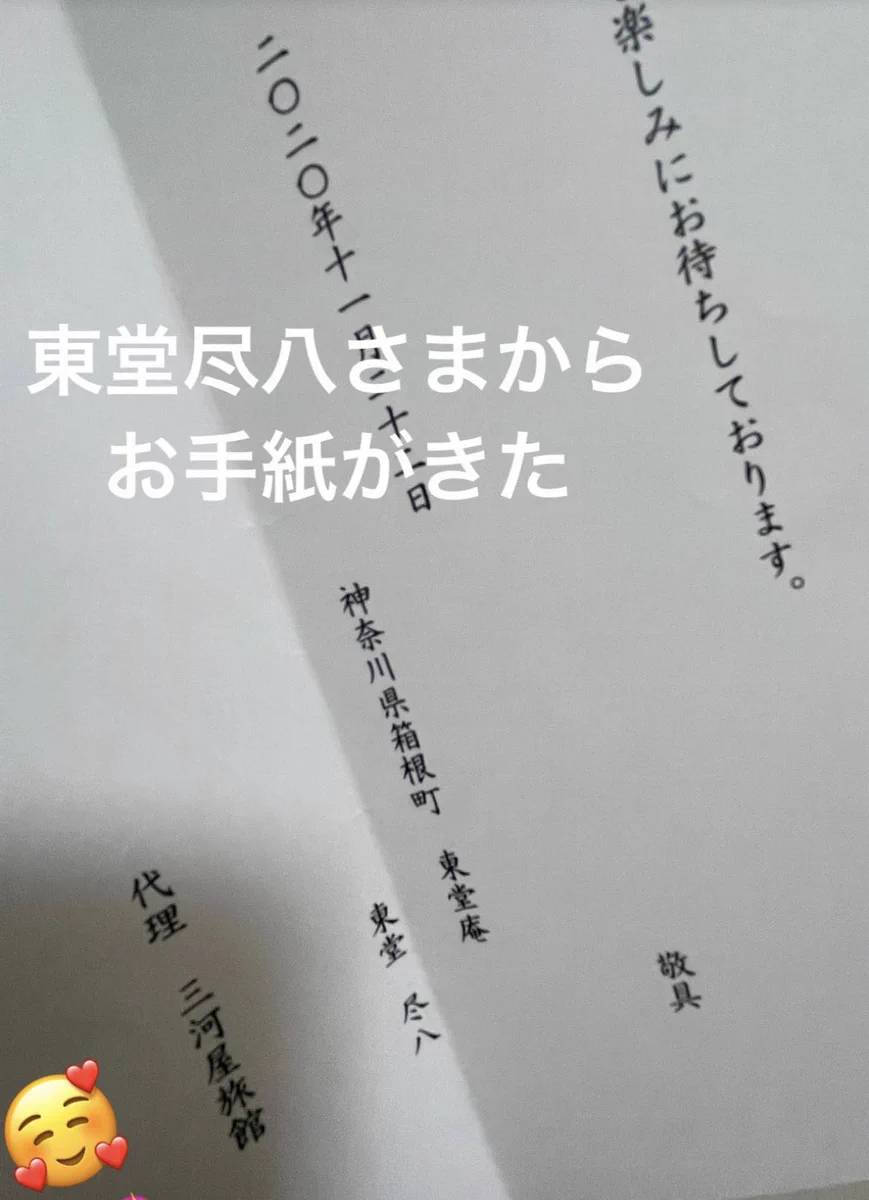 東堂尽八さまから
お手紙がきた
楽しみにお待ちしております。
敬具
二〇二〇年十一月二十二日
神奈川県箱根町　東堂庵
東堂　尽八
代理　三河屋旅館